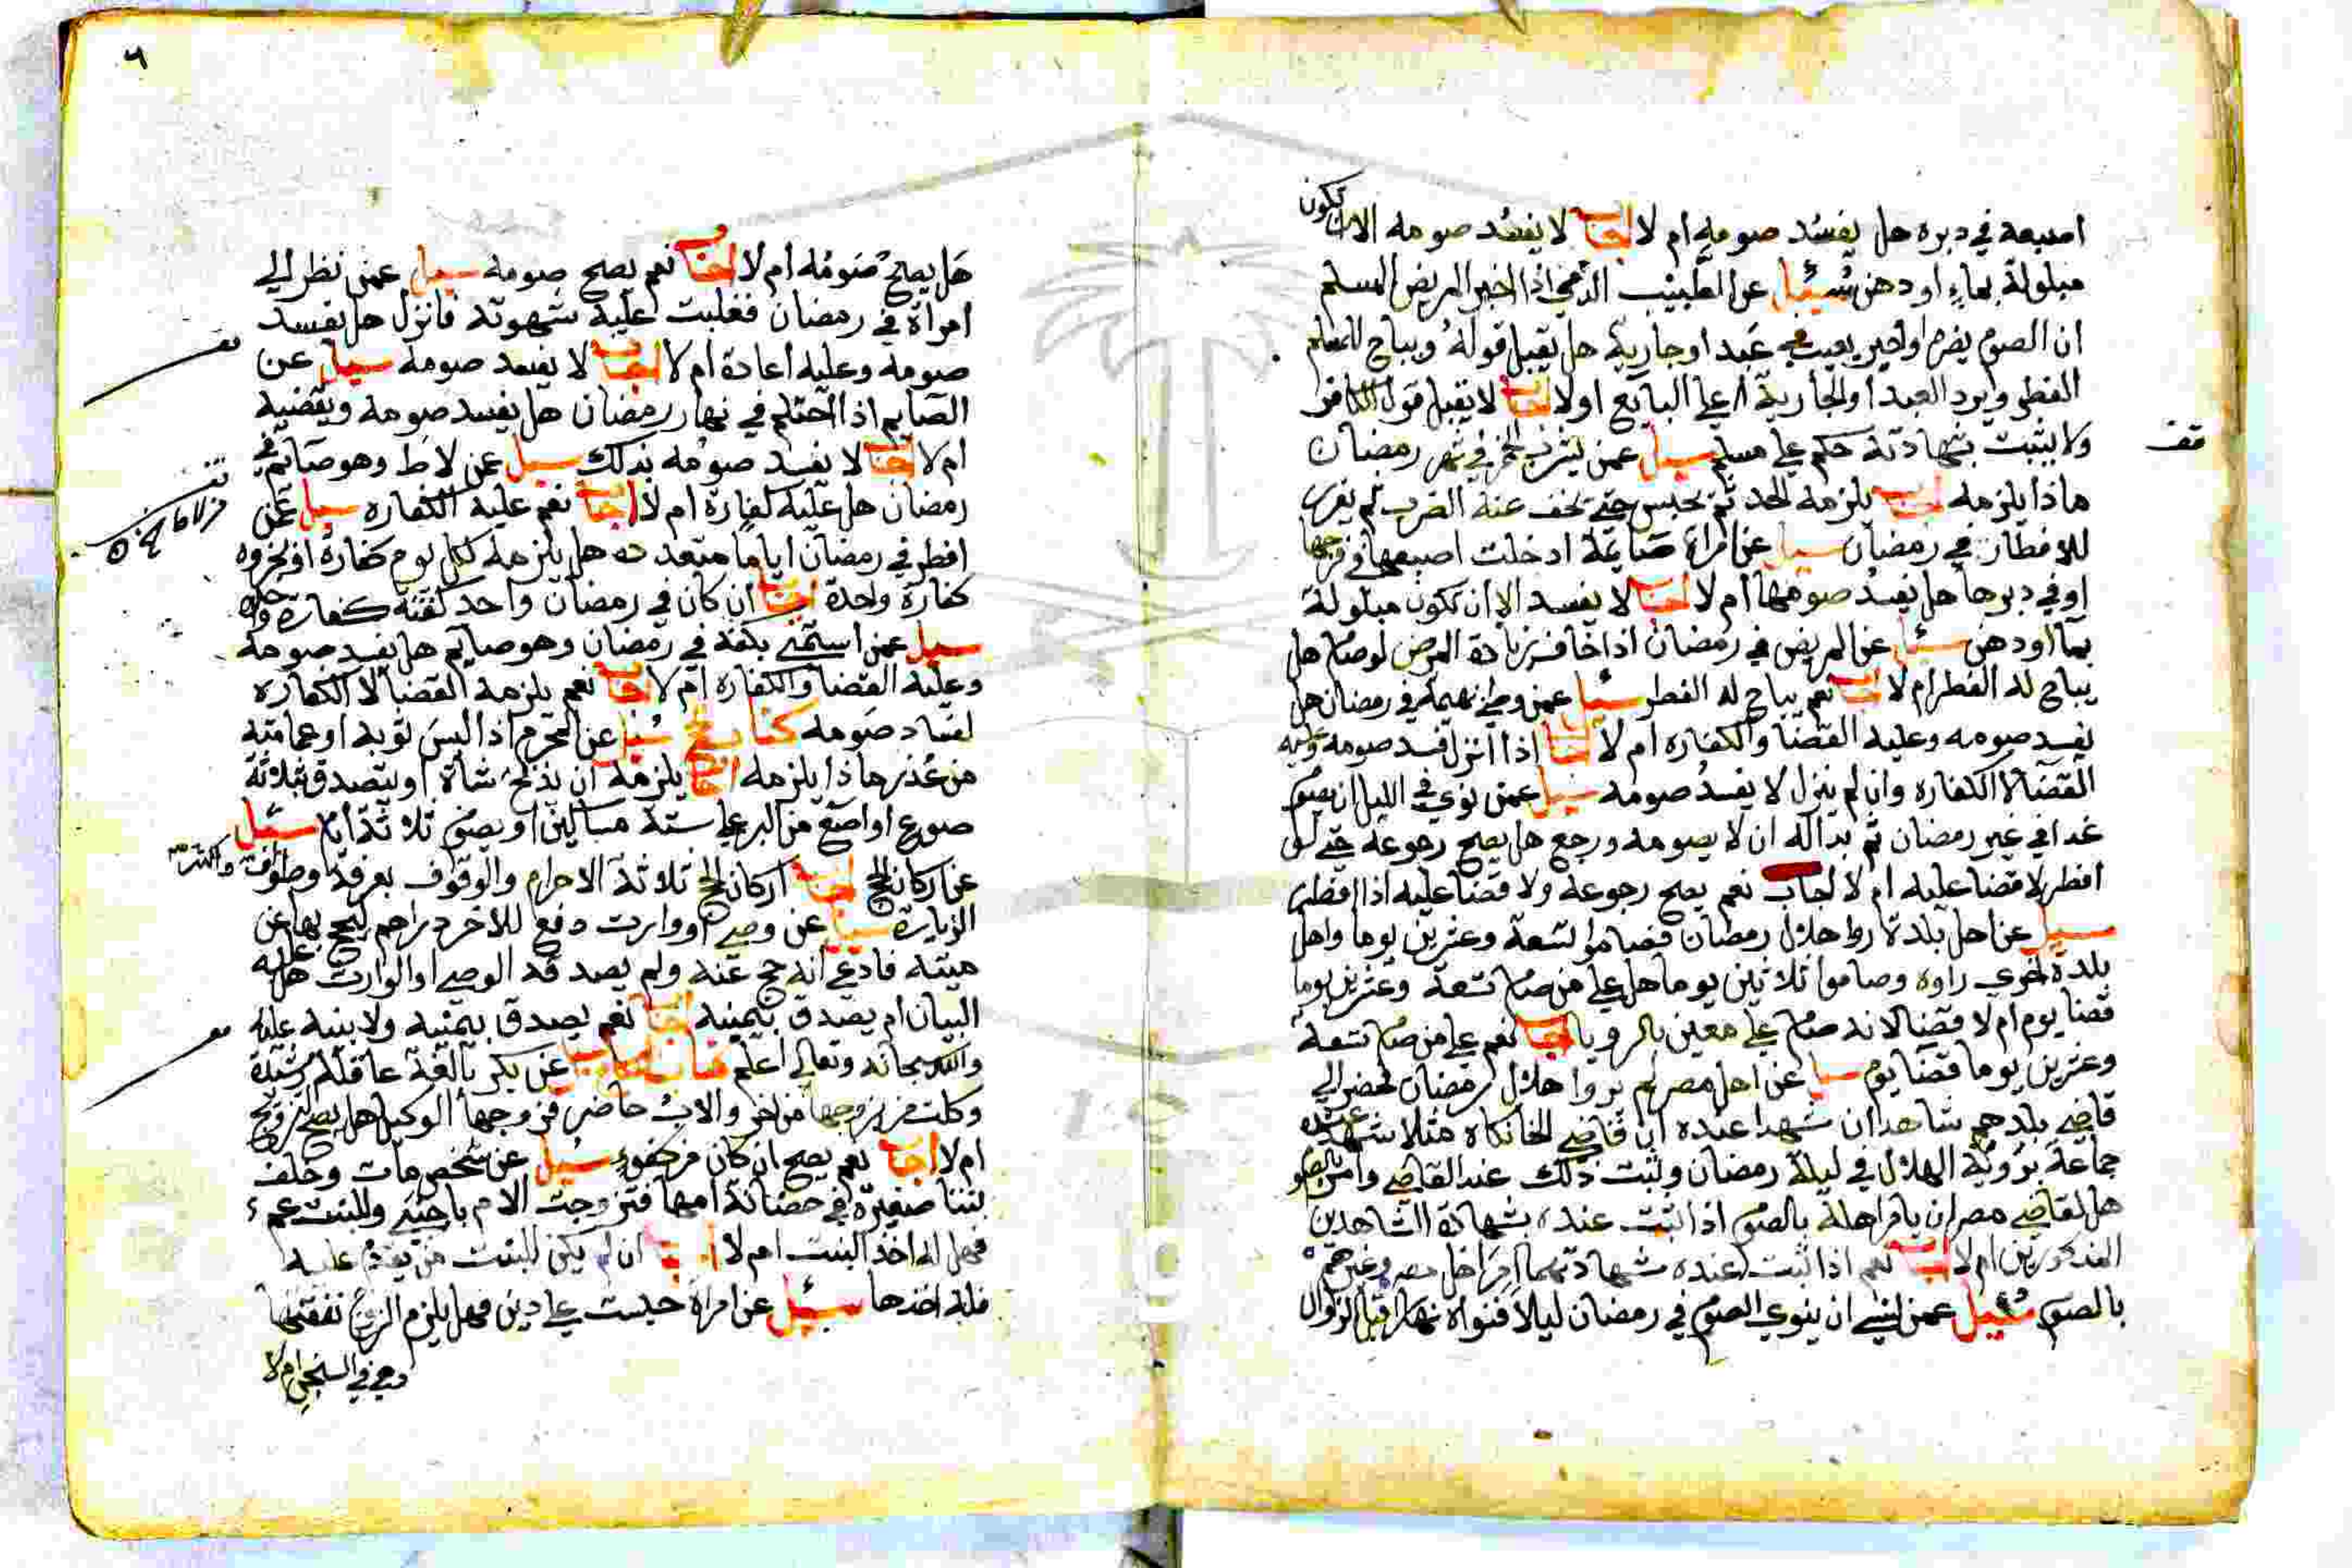 اصبعه في دبره هل يفسد صومه ام لا اجاب لا يفسد صومه الا ان تكون
مبلولة بماء او دهن سئيل عن الطبيب الذمي اذا اخبر المريض المسلم
ان الصوم يضره او اخبر بعيب في عبد او جارية هل يقبل قوله ويباح للمسلم
الفطر ويرد العبد او الجارية علي البايع اولا اجاب لا يقبل قول الكافر
ولا يثبت بشهادته حكم علي مسلم سيل عمن يشرب الخمر في شهر رمضان
قف
ماذا يلزمه اجاب يلزمه الحد ثم يحبس حتي يخف عنه الضرب ثم يعزر
للافطار في رمضان سيل عن امراة صايمة ادخلت اصبعها في فرجها
او في دبرها هل يفسد صومها ام لا اجاب لا يفسد الا ان تكون مبلولة
بماأ ودهن سئل عن المريض في رمضان اذا خاف زيادة المرض لو صام هل
يباح له الفطر ام لا اجاب نعم يباح له الفطر سئل عمن وطي بهيمة في رمضان هل
يفسد صومه وعليه القضا والكفارة ام لا اجاب اذا انزل فسد صومه وعليه
القضا لا الكفاره وان لم ينزل لا يفسد صومه سيل عمن نوي في الليل ان يصوم
غدا في غير رمضان ثم بدا له ان لا يصومه ورجع هل يصح رجوعه حتي لو
افطر لا قضا عليه ام لا اجاب نعم يصح رجوعه ولا قضا عليه اذا افطر
سيل عن اهل بلدة راوا هلال رمضان فصاموا تسعة وعشرين يوما واهل
بلدة اخري راوه وصاموا ثلاثين يوما هل علي من صام تسعة وعشرين يوما
قضا يوم ام لا قضا لانه صام علي معين بالرويا اجاب نعم علي من صام تسعة
وعشرين يوما قضا يوم سيل عن اهل مصر لم يروا هلال رمضان فحضر الي
قاضي بلدهم شاهدان شهدا عنده ان قاضي الخانكاه مثلا شهد عنده
جماعة برؤية الهلال في ليلة رمضان وثبت ذلك عند القاضي وامر بالصوم
هل لقاضي مصر ان يامر اهله بالصوم اذا ثبت عنده بشهادة الشاهدين
المذكورين ام لا اجاب نعم اذا ثبت عنده شهادتهما امر اهل مصر وغيرهم
بالصوم سئيل عمن نسي ان ينوي الصوم في رمضان ليلا فنواه نهارا قبل الزوال
٦
هل يصح صومه ام لا اجاب نعم يصح صومه سيل عمن نظر الي
امراة في رمضان فغلبت عليه شهوته فانزل هل يفسد
صومه وعليه اعادة ام لا اجاب لا يفسد صومه سيل عن
الصايم اذا احتلم في نهار رمضان هل يفسد صومه ويقضيه
ام لا اجاب لا يفسد صومه بذلك سيل عن لاط وهو صايم في
رمضان هل عليه كفارة ام لا اجاب نعم عليه الكفاره سيل عمن
افطر في رمضان اياما متعدده هل يلزمه لكل يوم كفارة او يجزوه
كفارة واحدة اجاب ان كان في رمضان واحد كفته كفارة واحدة
سيل عمن استمني بكفه في رمضان وهو صايم هل يفسد صومه
وعليه القضا والكفارة ام لا اجاب نعم يلزمه القضا لا الكفارة
لفساد صومه كتاب الحج سئل عن المحرم اذا لبس ثوبه او عمامته
من عذر ماذا يلزمه اجاب يلزمه ان يذبح شاة او يتصدق بثلاثة
صوع او اصع من البر علي ستة مساكين او يصوم ثلاثة ايام سئل
عن اركان الحج اجاب اركان الحج ثلاثة الاحرام والوقوف بعرفة وطواف
الزيارة سيل عن وصي او وارث دفع للاخر دراهم ليحج بها عن
ميته فادعي انه حج عنه ولم يصدقه الوصي او الوارث هل عليه
البيان ام يصدق بيمينه اجاب نعم يصدق بيمينه ولا بينه عليه
والله سبحانه وتعالي اعلم كتاب النكاح سيل عن بكر بالغة عاقلة رشيدة
وكلت من يزوجها من اخر والاب حاضر فزوجها الوكيل هل يصح التزويج
ام لا اجاب نعم يصح ان كان من كفوء سئيل عن شخص مات وخلف
بنتا صغيرة في حضانة امها فتزوجت الام باجنبي وللبنت عم
فهل له اخذ البنت ام لا اجاب ان لم يكن للبنت من يقدم عليه
فله اخذها سئيل عن امراة حبست علي دين فهل يلزم الزوج نفقتها
وهي في السجن ام لا